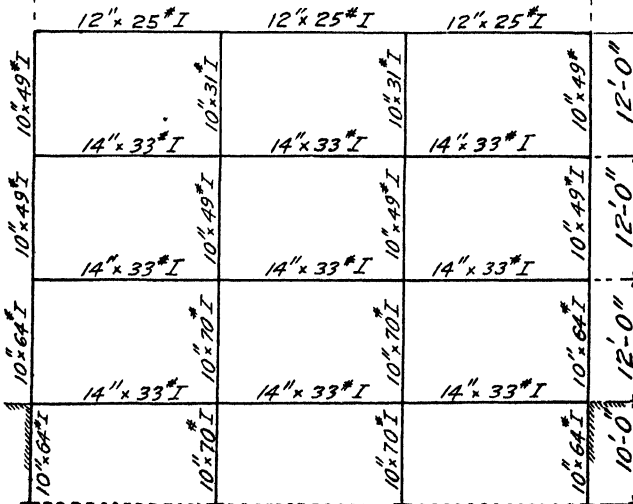 12"x 25# I 12"x 25# I 12"x 25# I
10"x49# I 10"x31# I 10"x31# I 10"x49# 12'-0"
14"x 33# I 14"x 33# I 14"x 33# I
10"x49# I 10"x49# I 10"x49# I 10"x49# I 12'-0"
14"x 33# I 14"x 33# I 14"x 33# I
10"x64# I 10"x70# I 10"x70# I 10"x64# I 12'-0"
14"x 33# I 14"x 33# I 14"x 33# I
10"x64# I 10"x70# I 10"x70# I 10"x64# I 10'-0"